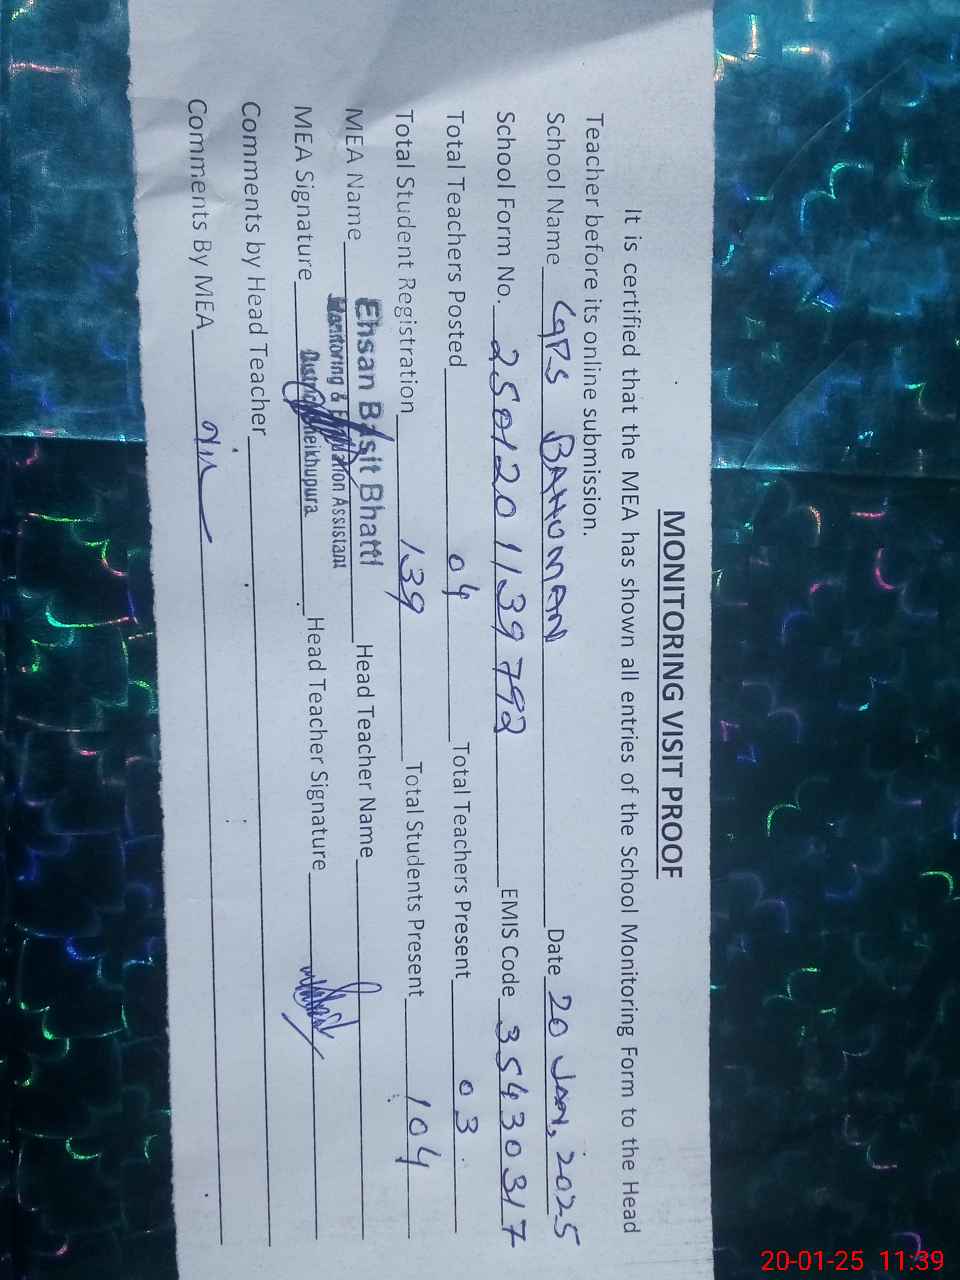 MONITORING VISIT PROOF
It is certified that the MEA has shown all entries of the School Monitoring Form to the Head
Teacher before its online submission.
School Name GPS BAHUMAN Date 20 JAN, 2025
School Form No. 2501201139792 EMIS Code 35430317
Total Teachers Posted 04 Total Teachers Present 03
Total Student Registration 139 Total Students Present 104
MEA Name Ehsan Basit Bhatti Head Teacher Name
Monitoring & Evaluation Assistant
MEA Signature District Sheikhupura Head Teacher Signature
Comments by Head Teacher
Comments By MEA Nil
20-01-25 11:39